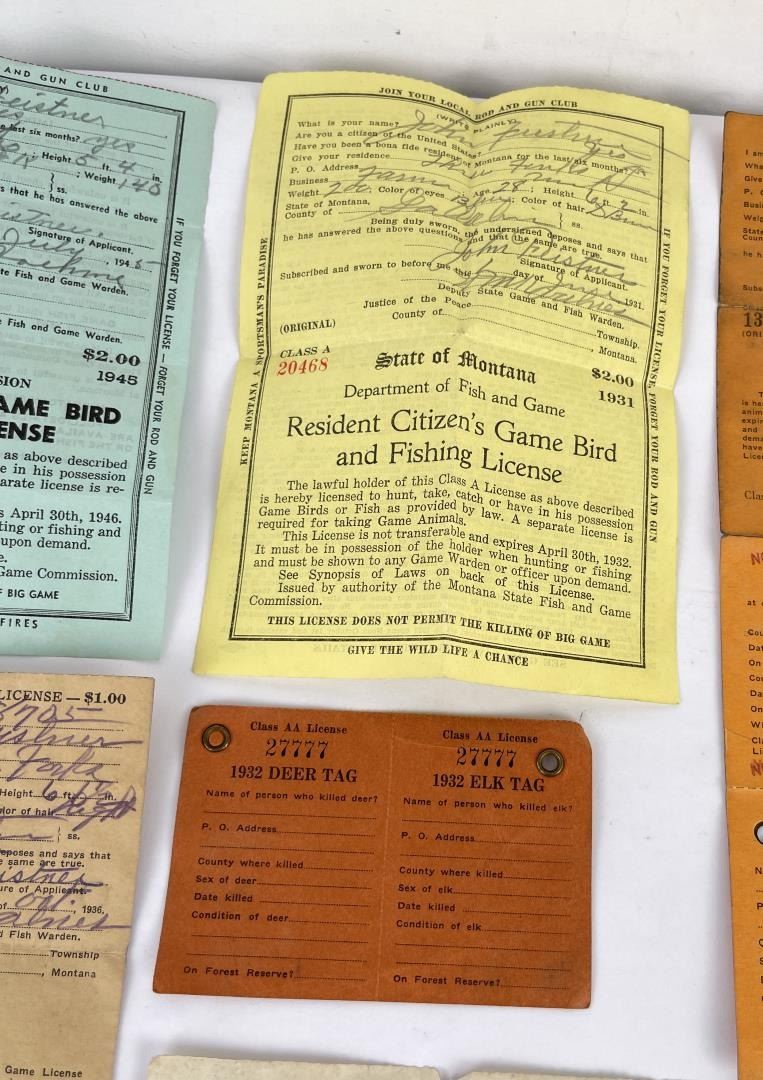 AND GUN CLUB
last six months? yes
; Height 5 ft. 4 in.
; Weight 140
} ss.
s that he has answered the above
Signature of Applicant.
July, 1945
te Fish and Game Warden.
Fish and Game Warden.
$2.00
1945
SION
AME BIRD
ENSE
as above described
e in his possession
parate license is re-
s April 30th, 1946.
ting or fishing and
upon demand.
e.
Game Commission.
F BIG GAME
FIRES
IF YOU FORGET YOUR LICENSE — FORGET YOUR ROD AND GUN
JOIN YOUR LOCAL ROD AND GUN CLUB
(WRITE PLAINLY)
What is your name? John
Are you a citizen of the United States? Yes
Have you been a bona fide resident of Montana for the last six months?
Give your residence
P. O. Address Three Forks
Business Farm Age 28; Height 6 ft. 2 in.
Weight 200 Color of eyes Color of hair Brn
State of Montana, } ss.
County of Gallatin
Being duly sworn, the undersigned deposes and says that
he has answered the above questions and that the same are true.
John
Signature of Applicant.
Subscribed and sworn to before me this day of June 1931.
Deputy State Game and Fish Warden.
Justice of the Peace
Township.
County of , Montana.
(ORIGINAL)
CLASS A
20468
State of Montana
$2.00
1931
Department of Fish and Game
Resident Citizen's Game Bird
and Fishing License
The lawful holder of this Class A License as above described
is hereby licensed to hunt, take, catch or have in his possession
Game Birds or Fish as provided by law. A separate license is
required for taking Game Animals.
This License is not transferable and expires April 30th, 1932.
It must be in possession of the holder when hunting or fishing
and must be shown to any Game Warden or officer upon demand.
See Synopsis of Laws on back of this License.
Issued by authority of the Montana State Fish and Game
Commission.
THIS LICENSE DOES NOT PERMIT THE KILLING OF BIG GAME
GIVE THE WILD LIFE A CHANCE
KEEP MONTANA A SPORTSMAN'S PARADISE
IF YOU FORGET YOUR LICENSE, FORGET YOUR ROD AND GUN
LICENSE — $1.00
8705
Forks
Height 6 ft. in.
olor of hair
} ss.
eposes and says that
e same are true.
ure of Applicant.
of Oct., 1936.
d Fish Warden.
Township
, Montana
Game License
Class AA License
27777
1932 DEER TAG
Name of person who killed deer?
P. O. Address
County where killed
Sex of deer
Date killed
Condition of deer
On Forest Reserve?
Class AA License
27777
1932 ELK TAG
Name of person who killed elk?
P. O. Address
County where killed
Sex of elk
Date killed
Condition of elk
On Forest Reserve?
I am
Wha
Give
P. O
Busi
Weig
State
Coun
he h
Subs
13
(ORI
T
is he
anim
expir
and
dema
have
Licen
Clas
NO
at
Cou
Dat
On
Cou
Da
On
Wi
Cla
Li
N
N
P